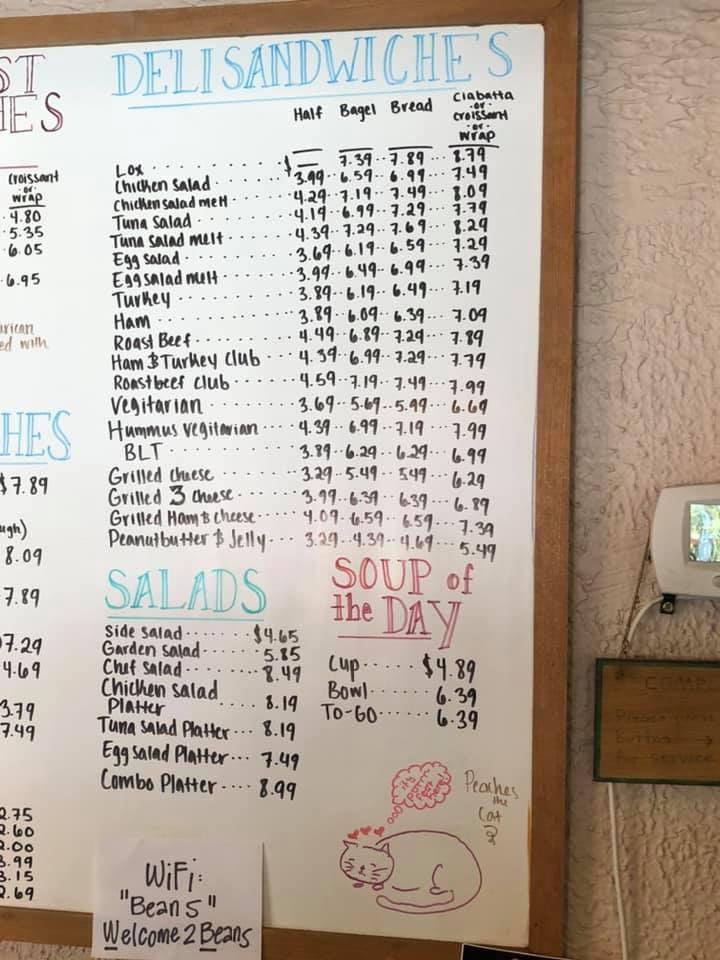 ST
HES
croissant
or
wrap
4.80
5.35
6.05
6.95
HES
$7.89
8.09
7.89
7.29
4.69
3.79
7.49
2.75
2.60
2.00
3.99
3.15
2.69
DELI SANDWICHE'S
Half Bagel Bread Ciabatta
or
croissant
or
wrap
Lox $ — 7.39 7.89 8.79
Chicken Salad 3.99 6.59 6.99 7.49
Chicken salad melt 4.29 7.19 7.49 8.09
Tuna Salad 4.19 6.99 7.29 7.79
Tuna salad melt 4.39 7.29 7.69 8.29
Egg salad 3.69 6.19 6.59 7.29
Egg salad melt 3.99 6.49 6.99 7.39
Turkey 3.89 6.19 6.49 7.19
Ham 3.89 6.09 6.39 7.09
Roast Beef 4.49 6.89 7.29 7.89
Ham & Turkey Club 4.39 6.99 7.29 7.79
Roastbeef Club 4.59 7.19 7.49 7.99
Vegitarian 3.69 5.69 5.99 6.69
Hummus vegitarian 4.39 6.99 7.19 7.99
BLT 3.89 6.29 6.29 6.99
Grilled cheese 3.29 5.49 5.49 6.29
Grilled 3 cheese 3.99 6.39 6.39 6.89
Grilled Ham & cheese 4.09 6.59 6.59 7.39
Peanutbutter & Jelly 3.29 4.39 4.69 5.49
SALADS
Side Salad $4.65
Garden Salad 5.85
Chef Salad 8.49
Chicken Salad
Platter 8.19
Tuna Salad Platter 8.19
Egg Salad Platter 7.49
Combo Platter 8.99
SOUP of
the DAY
Cup $4.89
Bowl 6.39
TO-GO 6.39
Peaches
the
Cat
WiFi:
"Bean 5"
Welcome2Beans